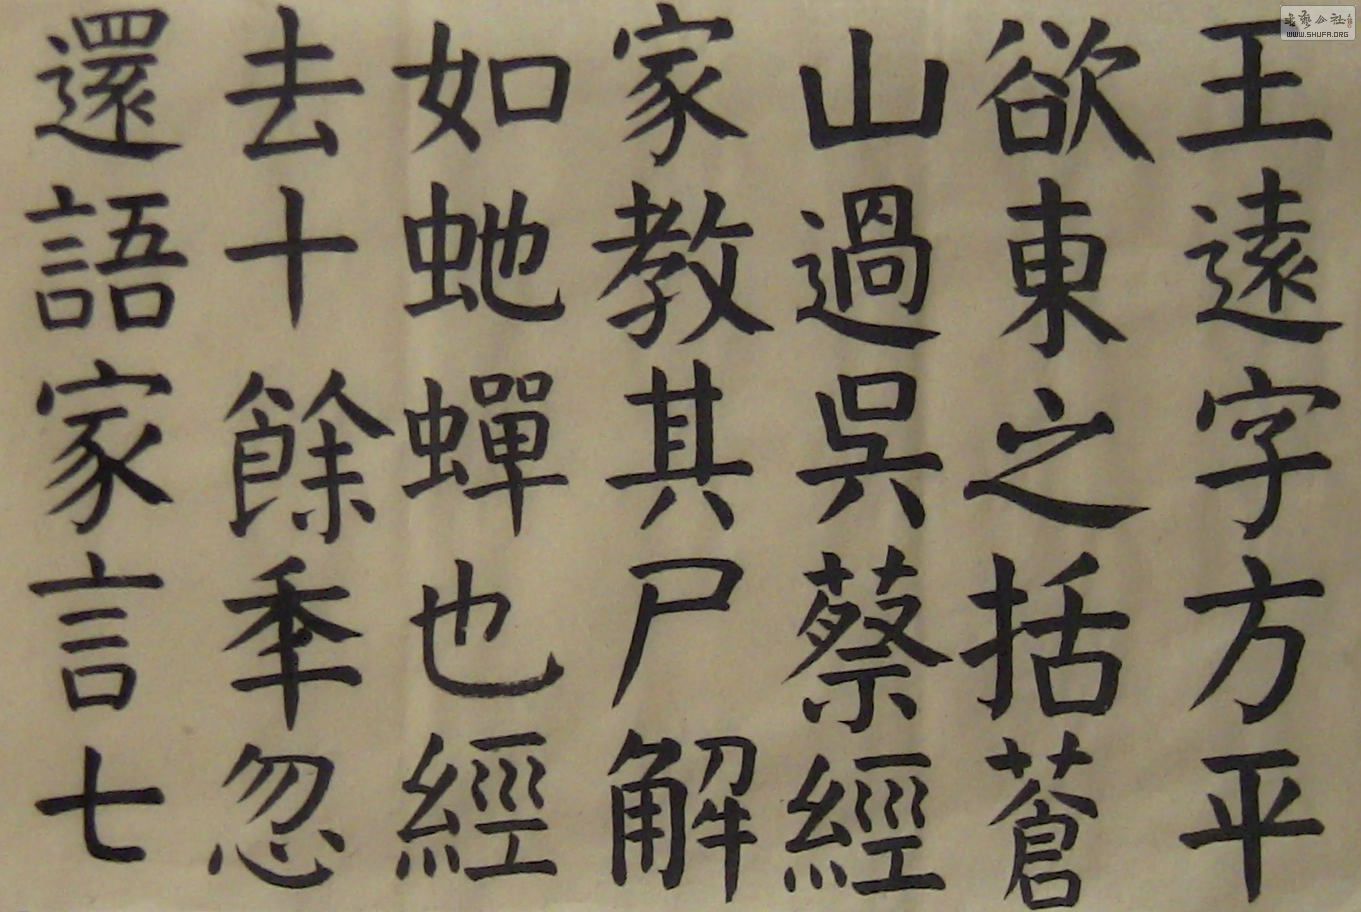 王遠字方平
欲東之括蒼
山過吳蔡經
家教其尸解
如虵蟬也經
去十餘秊忽
還語家言七
WWW.SHUFA.ORG